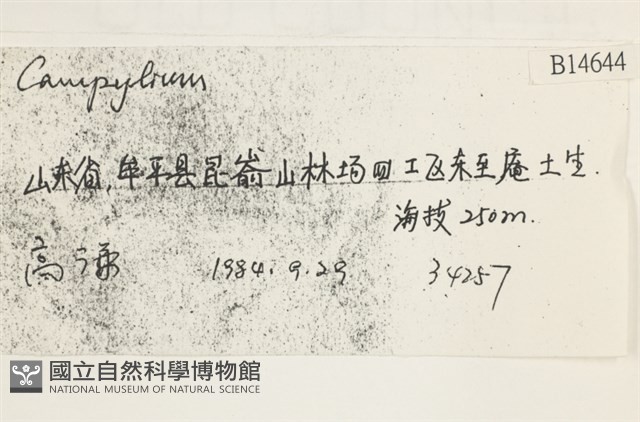 B14644
Campylium
山东省,牟平县昆嵛山林场四工区东至庵土生.
海拔 250m.
高谦 1984.9.29 34257
國立自然科學博物館
NATIONAL MUSEUM OF NATURAL SCIENCE